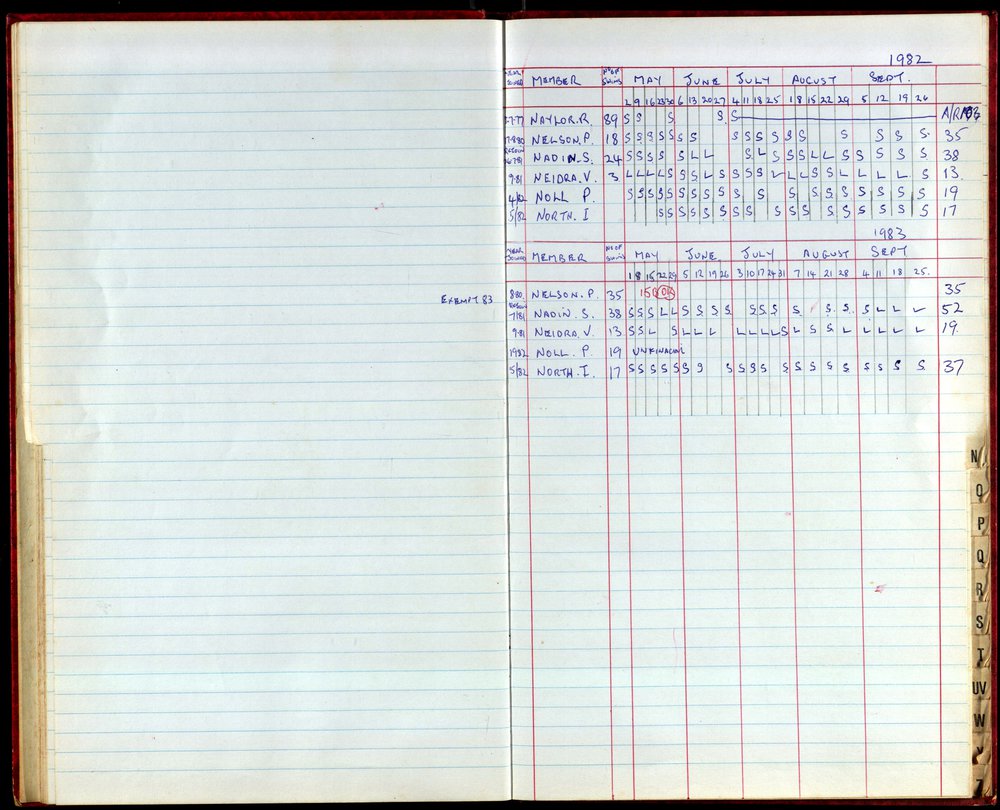 1982
YEAR JOINED MEMBER Nº OF SWIMS MAY JUNE JULY AUGUST SEPT.
2 9 16 23 30 6 13 20 27 4 11 18 25 1 8 15 22 29 5 12 19 26
NAYLOR.R. 89 S S S S S
NELSON.P. 18 S S S S S S S S S S S S S S S S S 35
NADIN.S. 24 S S S S S L L S L S S S L L S S S S S S 38
9.81 NEIDRA.V. 3 L L L L S S S L S S S S L L L S S L L L L L S 13.
4/82 NOLL P. S S S S S S S S S S S S S S S S S S S 19
5/82 NORTH. I S S S S S S S S S S S S S S S S S 17
1983
YEAR JOINED MEMBER Nº OF SWIMS MAY JUNE JULY AUGUST SEPT
1 8 15 22 29 5 12 19 26 3 10 17 24 31 7 14 21 28 4 11 18 25.
EXEMPT 83 8.80. NELSON. P. 35 35
7/81 NADIN. S. 38 S S S L L S S S S S S S S S S S S L L L 52
9.81 NEIDRA. V. 13 S S L S L L L L L L L L S L S S L L L L L 19.
1982 NOLL. P. 19
5/82 NORTH. I. 17 S S S S S S S S S S S S S S S S S S S S 37
N
O
P
Q
R
S
T
UV
W